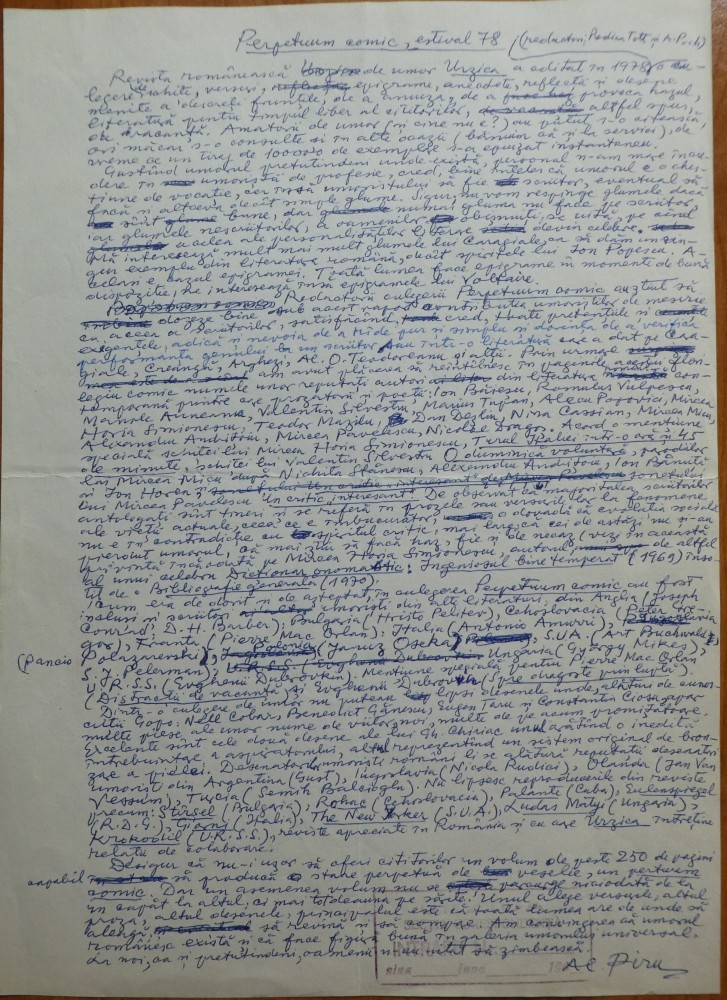 Perpetuum comic, estival 78 (redactori, Rodica Tott și A. Poch)
Revista românească de umor Urzica a editat în 1978 o cu-
legere schițe, versuri, epigrame, anecdote, reflecții și desene
menite a descreți frunțile, de a amuza, de a provoca hazul,
literatură pentru timpul liber al cititorilor, altfel spus,
de vacanță. Amatorii de umor (și cine nu e?) au putut s-o citească,
ori măcar s-o consulte și în alte ocazii (bănuim că și la serviciu), de
vreme ce un tiraj de 100000 de exemplare s-a epuizat instantaneu.
Gustînd umorul pretutindeni unde există, personal n-am mare încre-
dere în umoriștii de profesie, cred, bine înțeles că umorul e o ches-
tiune de vocație, cer însă umoristului să fie scriitor, eventual să
facă și altceva decît simple glume. Sigur, nu vom respinge glumele dacă
sînt bune, dar numai gluma nu face pe scriitor,
iar glumele nescriitorilor, a oamenilor obișnuiți, se uită, pe cînd
acelea ale personalităților literare devin celebre.
Mă interesează mult mai mult glumele lui Caragiale, ca să dăm un sin-
gur exemplu din literatura română, decît spiritele lui Ion Popescu. A-
celași e cazul epigramei. Toată lumea face epigrame în momente de bună
dispoziție, ne interesează însă epigramele lui Voltaire.
Redactorii culegerii Perpetuum comic au știut să
dozeze bine sub acest raport contribuția umoriștilor de meserie
cu aceea a scriitorilor, satisfăcînd, cred, toate pretențiile și
exigențele, adică și nevoia de a rîde pur și simplu și dorința de a verifica
performanța genului la un scriitor sau într-o literatură care a dat pe Cara-
giale, Creangă, Arghezi, Al. O. Teodoreanu și alții. Prin urmare
am avut plăcerea să reîntîlnesc în paginile acestui flori-
legiu comic numele unor reputați autori din literatura română con-
temporană printre care prozatori și poeți: Ion Băieșu, Romulus Vulpescu,
Manole Auneanu, Valentin Silvestru, Marius Tupan, Alecu Popovici, Mircea
Horia Simionescu, Teodor Mazilu, Dan Deșliu, Nina Cassian, Mircea Micu,
Alexandru Andrițoiu, Mircea Pavelescu, Nicolae Dragoș. Acord o mențiune
specială schiței lui Mircea Horia Simionescu, Turul Italiei într-o oră și 45
de minute, schiței lui Valentin Silvestru O duminică voluntară, parodiilor
lui Mircea Micu după Nichita Stănescu, Alexandru Andrițoiu, Ion Bănuță
și Ion Horea, sonetului
lui Mircea Pavelescu Un critic interesant. De observat că majoritatea scriitorilor
antologați sînt tineri și se referă în prozele sau versurile lor la fenomene
ale vieții actuale, ceea ce e îmbucurător, o dovadă că evoluția socială
nu e în contradicție cu spiritul critic, mai larg, că cei de astăzi nu și-au
pierdut umorul, că mai știu să facă haz, fie și de necaz (vezi în această
privință încă odată pe Mircea Horia Simionescu, autorul de altfel
al unui celebru Dicționar onomastic: Ingeniosul bine temperat (1969) înso-
țit de o Bibliografie generală (1970).
Cum era de dorit și de așteptat, în culegerea Perpetuum comic au fost
incluși și scriitori umoriști din alte literaturi, din Anglia (Joseph
Conrad; D. H. Barber); Bulgaria (Hristo Pelitev), Cehoslovacia (Peter Gre-
gor), Franța (Pierre Mac Orlan); Italia (Antonio Amurri),
Polonia (Janusz Oseka), S.U.A. (Art Buchwald,
S. J. Perelman), Ungaria (György Mikes),
U.R.S.S. (Evghenii Dubrovkin). Mențiune specială pentru Pierre Mac Orlan
(Distracții de vacanță) și Evghenii Dubrovkin (Spre dragoste prin luptă).
Dintr-o culegere de umor nu puteau lipsi desenele unde, alături de cunos-
cuții Gopo, Nell Cobar, Benedict Gănescu, Eugen Taru și Constantin Ciosu, apar
multe piese ale unor nume de viitor, noi, multe de pe acum promițătoare.
Excelente sînt cele două desene ale lui Gh. Chiriac unul arătînd o inedită
întrebuințare a aspiratorului, altul reprezentînd un sistem original de bron-
zare a pielei. Desenatorilor umoriști români li se alătură reputații desenatori
umoriști din Argentina (Gust), Iugoslavia (Nicola Rudici), Olanda (Jan Van
Wessum), Turcia (Semih Balcioglu). Nu lipsesc reproducerile din reviste
precum: Stîrșel (Bulgaria), Rohac (Cehoslovacia), Palante (Cuba), Eulenspiegel
(R.D.G.), Giorni (Italia), The New Yorker (S.U.A.), Ludas Matyi (Ungaria),
Krokodil (U.R.S.S.), reviste apreciate în România și cu care Urzica întreține
relații de colaborare.
Desigur că nu-i ușor să oferi cititorilor un volum de peste 250 de pagini
capabil să producă o stare perpetuă de veselie, un perpetuum
comic. Dar un asemenea volum nu se parcurge niciodată de la
un capăt la altul, ci mai totdeauna pe sărite. Unul alege versurile, altul
proza, altul desenele, principalul este că toată lumea are de unde să
aleagă, să revină și să compare. Am convingerea că umorul
românesc există și că face figură bună în galeria umorului universal.
La noi, ca și pretutindeni, oamenii n-au uitat să zîmbească.
Al. Piru